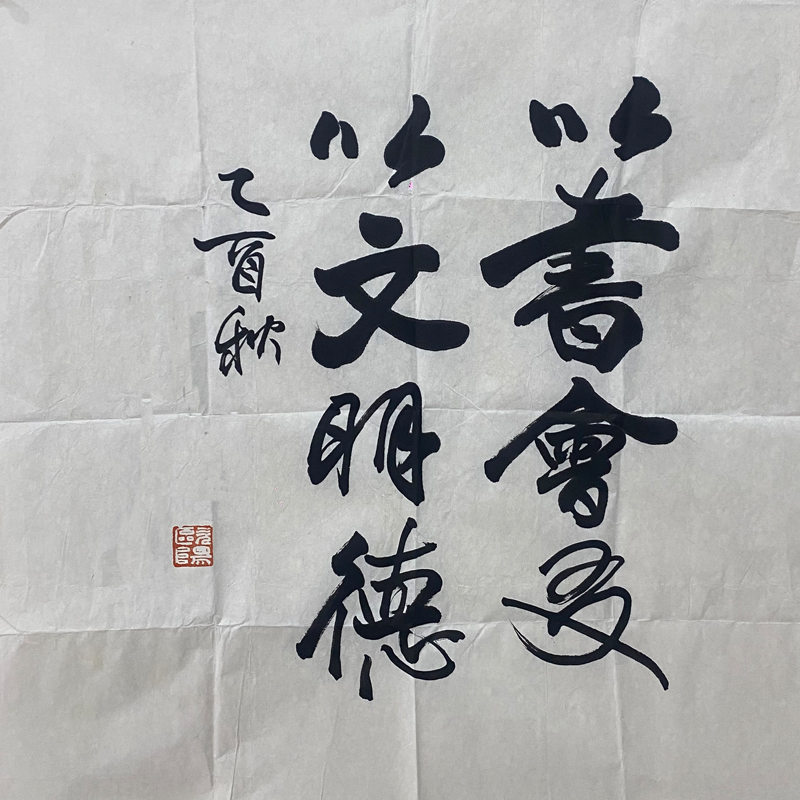 以書會友
以文明德
乙酉秋